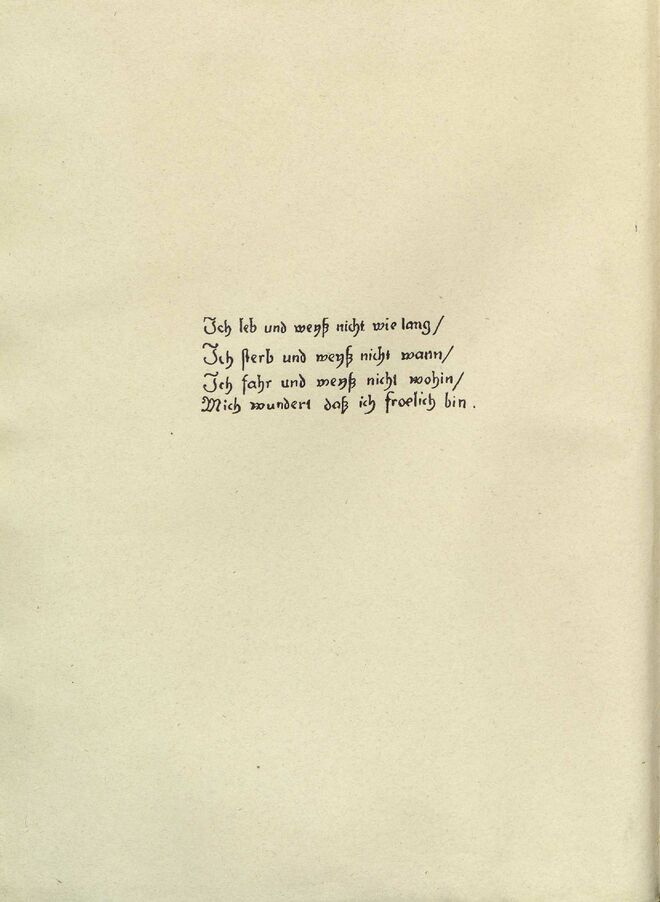 Ich leb und weyß nicht wie lang/
Ich sterb und weyß nicht wann/
Ich fahr und weyß nicht wohin/
Mich wundert daß ich froelich bin.